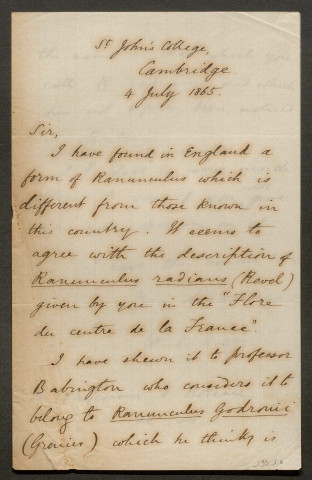 St John's College,
Cambridge.
4 July 1865.
Sir,
I have found in England a
form of Ranunculus which is
different from those known in
this country. It seems to
agree with the description of
Ranunculus radians (Revel)
given by you in the "Flore
du centre de la France".
I have shewn it to professor
Babington who considers it to
belong to Ranunculus Godronii
(Grenier) which he thinks is